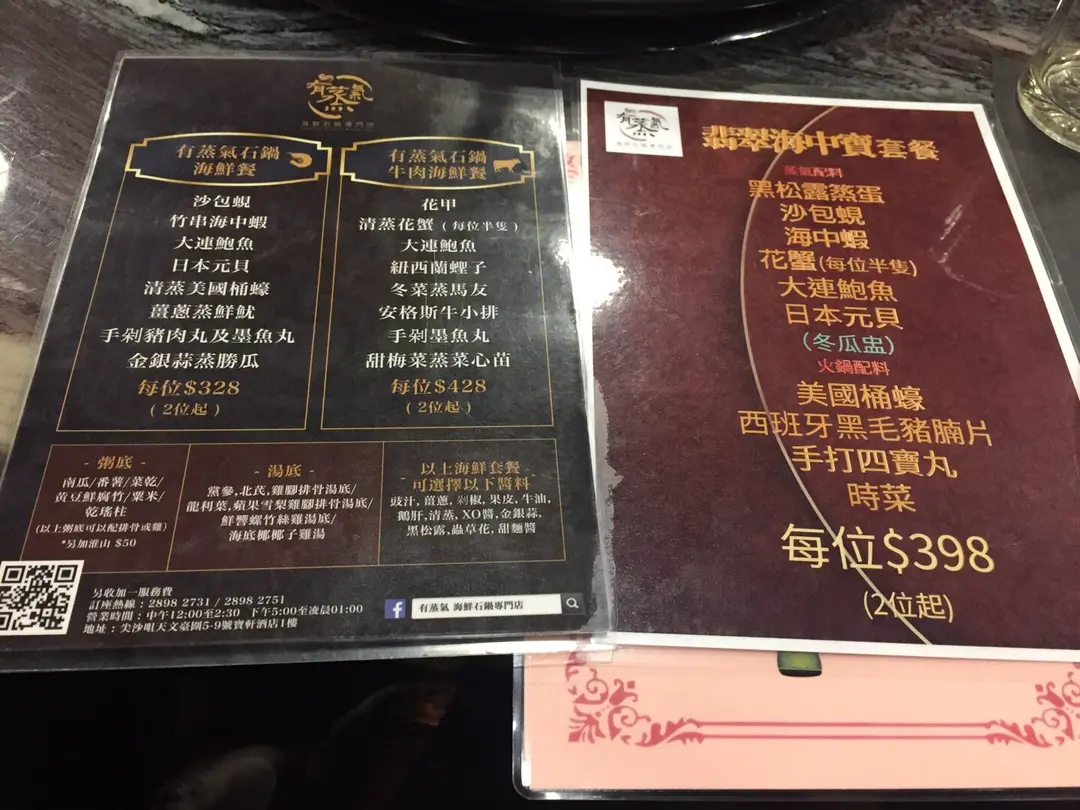 有蒸氣
海鮮石鍋專門店
有蒸氣石鍋
海鮮餐
沙包蜆
竹串海中蝦
大連鮑魚
日本元貝
清蒸美國桶蠔
薑蔥蒸鮮魷
手剁豬肉丸及墨魚丸
金銀蒜蒸勝瓜
每位$328
(2位起)
有蒸氣石鍋
牛肉海鮮餐
花甲
清蒸花蟹(每位半隻)
大連鮑魚
紐西蘭蟶子
冬菜蒸馬友
安格斯牛小排
手剁墨魚丸
甜梅菜蒸菜心苗
每位$428
(2位起)
- 粥底 -
南瓜/番薯/菜乾/
黃豆鮮腐竹/粟米/
乾瑤柱
(以上粥底可以配排骨或雞)
*另加淮山 $50
- 湯底 -
黨參,北芪,雞腳排骨湯底/
龍利葉,蘋果雪梨雞腳排骨湯底/
鮮響螺竹絲雞湯底/
海底椰椰子雞湯
以上海鮮套餐
- 可選擇以下醬料 -
豉汁,薑蔥,剁椒,果皮,牛油,
鵝肝,清蒸,XO醬,金銀蒜,
黑松露,蟲草花,甜麵醬
另收加一服務費
訂座熱線:2898 2731 / 2898 2751
營業時間:中午12:00至2:30 下午5:00至凌晨01:00
地址:尖沙咀天文臺圍5-9號寶軒酒店1樓
f 有蒸氣 海鮮石鍋專門店
有蒸氣
海鮮石鍋專門店
翡翠海中寶套餐
蒸氣配料
黑松露蒸蛋
沙包蜆
海中蝦
花蟹(每位半隻)
大連鮑魚
日本元貝
(冬瓜盅)
火鍋配料
美國桶蠔
西班牙黑毛豬腩片
手打四寶丸
時菜
每位$398
(2位起)